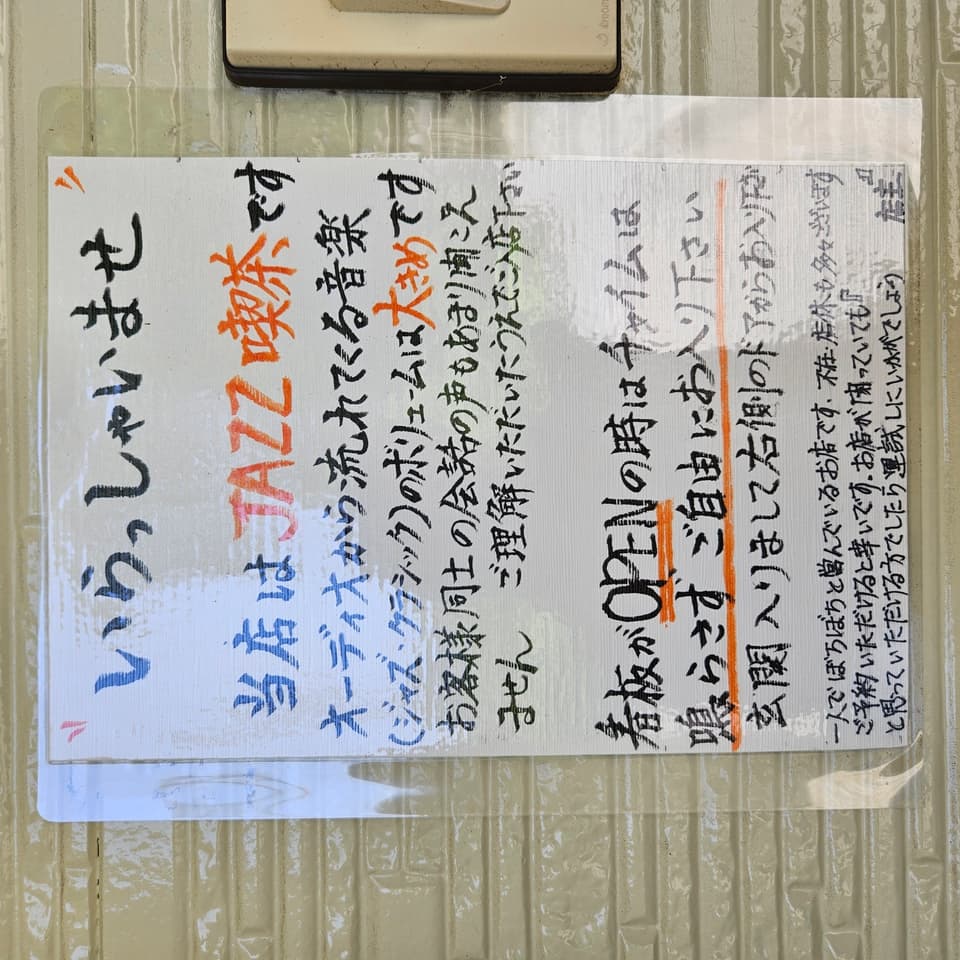 いらっしゃいませ
当店はJAZZ喫茶です
オーディオから流れてくる音楽
(ジャズ・クラシック)のボリュームは大きめです
お客様同士の会話の声もあまり聞こえ
ません ご理解いただいたうえでご入店下さい
看板がOPENの時はチャイムは
鳴らさず ご自由にお入り下さい
玄関入りまして右側のドアからお入り下さい
一人でぼちぼちと営んでいるお店です・不在・店休も多々ございます
ご予約いただけると幸いです・お店が『困っていても』
と思っていただける方でしたら運試しにいかがでしょう 店主